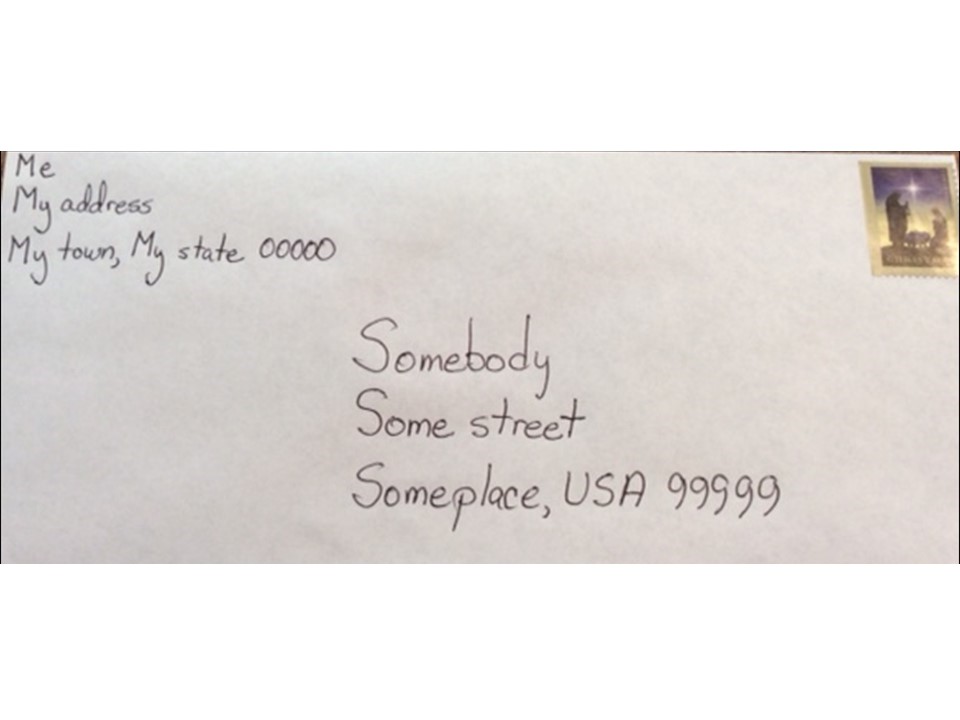 Me
My address
My town, My state 00000
Somebody
Some street
Someplace, USA 99999